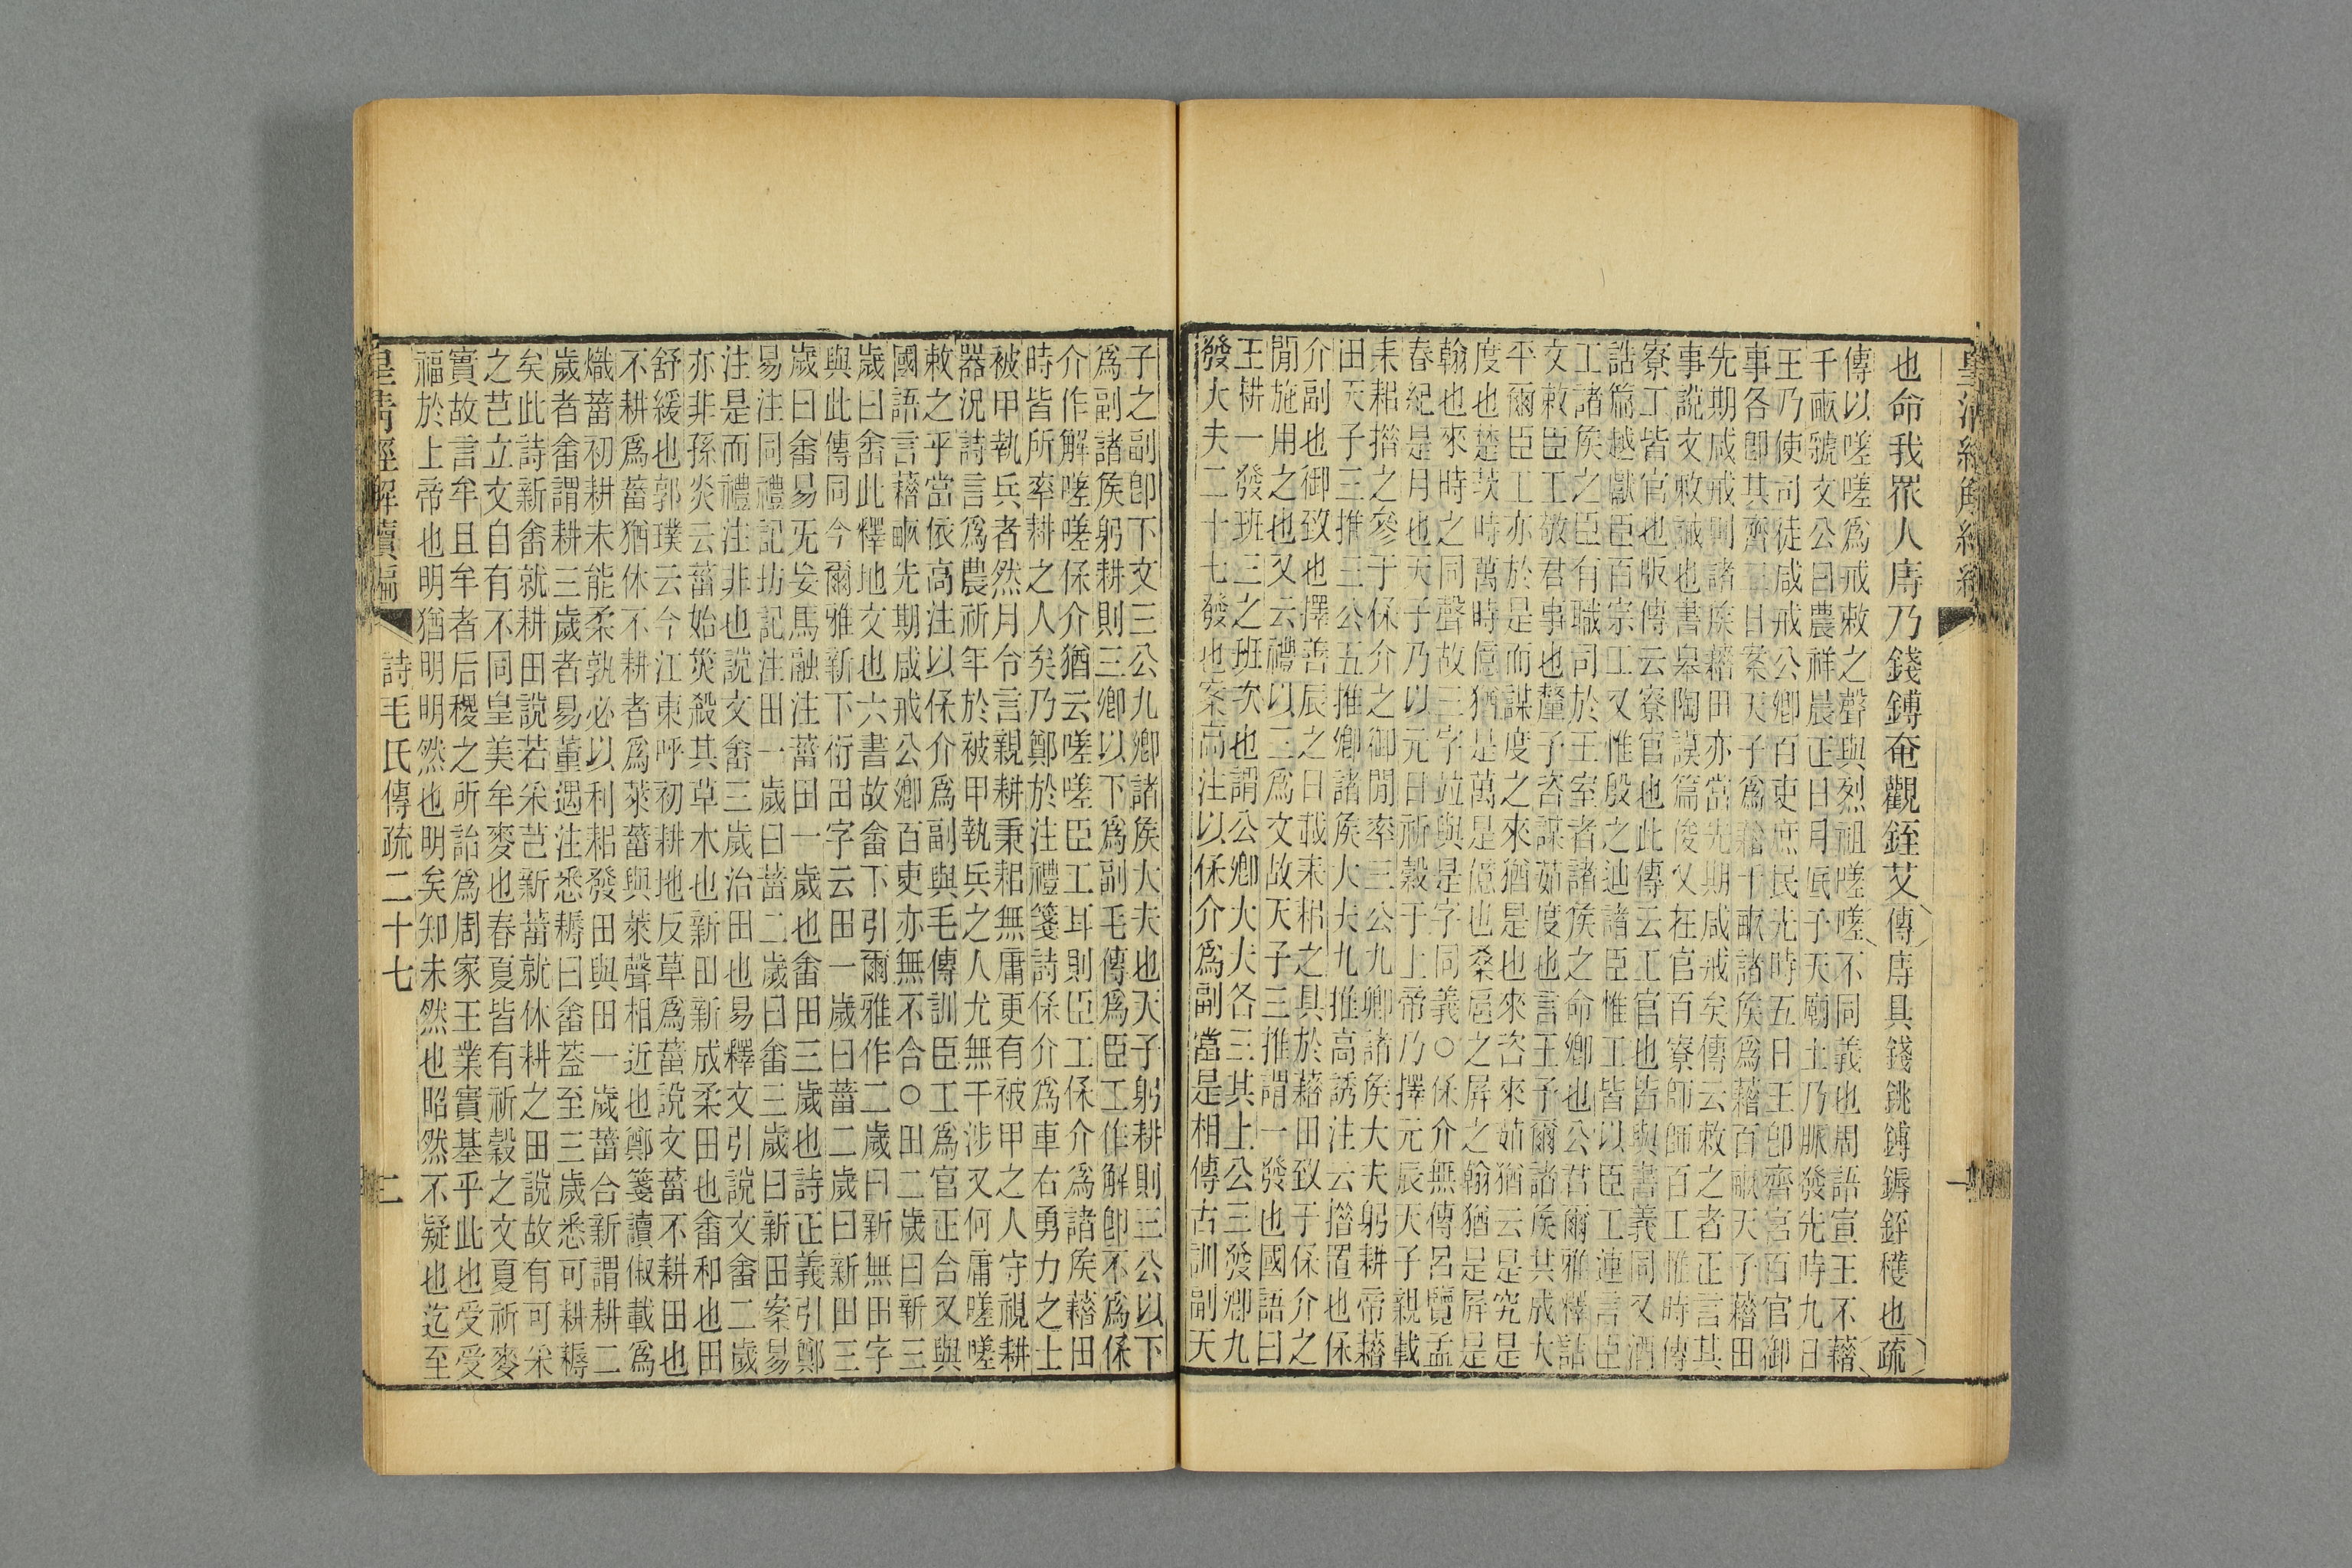 也命我眾人庤乃錢鎛奄觀銍艾傳庤具錢銚鎛鎒銍穫也疏
傳以嗟嗟為戒敕之聲與烈祖嗟嗟不同義也周語宣王不藉
千畝虢文公曰農祥晨正日月底于天廟土乃脈發先時九日
王乃使司徒咸戒公卿百吏庶民先時五日王即齊宮百官御
事各即其齊三日案天子為藉千畝諸矦為藉百畝天子藉田
先期咸戒則諸矦藉田亦當先期咸戒矣傳云敕之者正言其
事說文敕誡也書皋陶謨篇俊乂在官百寮師師百工惟時傳
寮工皆官也版傳云寮官也此傳云工官也皆與書義同又酒
誥篇越獻臣百宗工又惟殷之迪諸臣惟工皆以臣工連言臣
工諸矦之臣有職司於王室者諸矦之命卿也公君爾雅釋詁
文敕臣工敬君事也釐予咨謀茹度也言王予爾諸矦其成大
平爾臣工亦於是而謀度之來猶是也來咨來茹猶云是究是
度也楚茨時萬時億猶是萬是億也桑扈之屏之翰猶是屏是
翰也來時之同聲故三字竝與是字同義○保介無傳呂覽孟
春紀是月也天子乃以元日祈穀于上帝乃擇元辰天子親載
耒耜措之參于保介之御閒率三公九卿諸矦大夫躬耕帝藉
田天子三推三公五推卿諸矦大夫九推高誘注云措置也保
介副也御致也擇善辰之日載耒耜之具於藉田致于保介之
閒施用之也又云禮以三為文故天子三推謂一發也國語曰
王耕一發班三之班次也謂公卿大夫各三其上公三發卿九
發大夫二十七發也案高注以保介為副當是相傳古訓副天
子之副卽下文三公九卿諸矦大夫也天子躬耕則三公以下
為副諸矦躬耕則三卿以下為副毛傳為臣工作解卽不為保
介作解嗟嗟保介猶云嗟嗟臣工耳則臣工保介為諸矦藉田
時皆所率耕之人矣乃鄭於注禮箋詩保介為車右勇力之士
被甲執兵者然月令言親耕秉耜無庸更有被甲之人守視耕
器況詩言為農祈年於被甲執兵之人尤無干涉又何庸嗟嗟
敕之乎當依高注以保介為副與毛傳訓臣工為官正合又與
國語言藉畝先期咸戒公卿百吏亦無不合○田二歲曰新三
歲曰畬此釋地文也六書故畬下引爾雅作二歲曰新無田字
與此傳同今爾雅新下衍田字云田一歲曰菑二歲曰新田三
歲曰畬易无妄馬融注菑田一歲也畬田三歲也詩正義引鄭
易注同禮記坊記注田一歲曰菑二歲曰畬三歲曰新田案易
注是而禮注非也說文畬三歲治田也易釋文引說文畬二歲
亦非孫炎云菑始災殺其草木也新田新成柔田也畬和也田
舒緩也郭璞云今江東呼初耕地反草為菑說文菑不耕田也
不耕為菑猶休不耕者為萊菑與萊聲相近也鄭箋讀俶載為
熾菑初耕未能柔孰必以利耜發田與田一歲菑合新謂耕二
歲者畬謂耕三歲者易董遇注悉耨曰畬葢至三歲悉可耕耨
矣此詩新畬就耕田說若采芑新菑就休耕之田說故有可采
之芑立文自有不同皇美牟麥也春夏皆有祈穀之文夏祈麥
實故言牟且牟者后稷之所詒為周家王業實基乎此也受受
福於上帝也明猶明明然也明矣知未然也昭然不疑也迄至
皇清經解續編 詩毛氏傳疏二十七 二